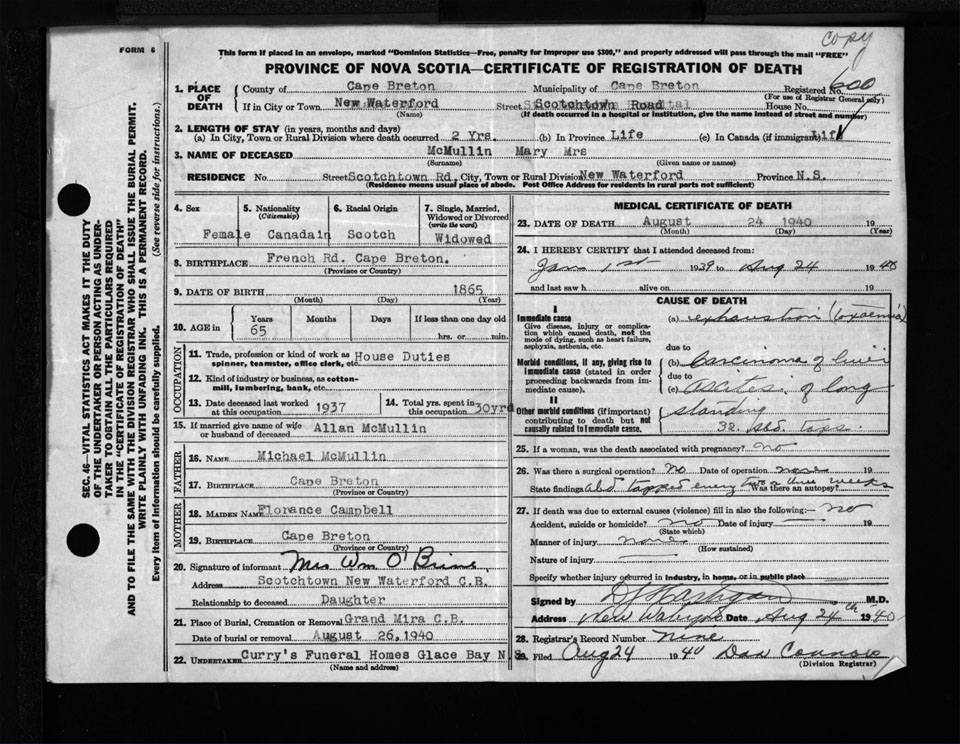 copy
FORM 6
This form if placed in an envelope, marked "Dominion Statistics—Free, penalty for improper use $300," and properly addressed will pass through the mail "FREE"
PROVINCE OF NOVA SCOTIA—CERTIFICATE OF REGISTRATION OF DEATH
SEC. 46—VITAL STATISTICS ACT MAKES IT THE DUTY
OF THE UNDERTAKER OR PERSON ACTING AS UNDER-
TAKER TO OBTAIN ALL THE PARTICULARS REQUIRED
IN THE "CERTIFICATE OF REGISTRATION OF DEATH"
AND TO FILE THE SAME WITH THE DIVISION REGISTRAR WHO SHALL ISSUE THE BURIAL PERMIT.
WRITE PLAINLY WITH UNFADING INK. THIS IS A PERMANENT RECORD.
Every item of information should be carefully supplied. (See reverse side for instructions.)
1. PLACE OF DEATH
County of Cape Breton Municipality of Cape Breton Registered No. 600
(For use of Registrar General only)
If in City or Town New Waterford Street Scotchtown Road House No.
(Name) (If death occurred in a hospital or institution, give the name instead of street and number)
2. LENGTH OF STAY (in years, months and days)
(a) In City, Town or Rural Division where death occurred 2 Yrs. (b) In Province Life (c) In Canada (if immigrant) Life
3. NAME OF DECEASED McMullin Mary Mrs
(Surname) (Given name or names)
RESIDENCE No Street Scotchtown Rd, City, Town or Rural Division New Waterford Province N.S.
(Residence means usual place of abode. Post Office Address for residents in rural parts not sufficient)
4. Sex 5. Nationality (Citizenship) 6. Racial Origin 7. Single, Married, Widowed or Divorced (write the word)
Female Canadain Scotch Widowed
8. BIRTHPLACE French Rd. Cape Breton.
(Province or Country)
9. DATE OF BIRTH 1865
(Month) (Day) (Year)
10. AGE in Years Months Days If less than one day old
65 hrs. or min.
OCCUPATION
11. Trade, profession or kind of work as House Duties
spinner, teamster, office clerk, etc.
12. Kind of industry or business, as cotton-
mill, lumbering, bank, etc.
13. Date deceased last worked at this occupation 1937 14. Total yrs. spent in this occupation 30yrd
15. If married give name of wife or husband of deceased Allan McMullin
FATHER
16. NAME Michael McMullin
17. BIRTHPLACE Cape Breton
(Province or Country)
MOTHER
18. MAIDEN NAME Florance Campbell
19. BIRTHPLACE Cape Breton
(Province or Country)
20. Signature of informant Mrs Wm O'Brine
Address Scotchtown New Waterford C.B.
Relationship to deceased Daughter
21. Place of Burial, Cremation or Removal Grand Mira C.B.
Date of burial or removal August 26,1940
22. UNDERTAKER Curry's Funeral Homes Glace Bay N.S.
(Name and address)
MEDICAL CERTIFICATE OF DEATH
23. DATE OF DEATH August 24 1940 19
(Month) (Day) (Year)
24. I HEREBY CERTIFY that I attended deceased from:
Jan 1st 1939 to Aug 24 1940
and last saw h alive on 19
CAUSE OF DEATH
I
Immediate cause (a) exhaustion (toxaemia)
Give disease, injury or complica-
tion which caused death, not the
mode of dying, such as heart failure,
asphyxia, asthenia, etc.
due to
Morbid conditions, if any, giving rise to (b) Carcinoma of liver
immediate cause (stated in order due to
proceeding backwards from im- (c) ascites: of long
mediate cause).
II standing
Other morbid conditions (if important)
contributing to death but not
causally related to immediate cause. 32. abd. taps.
25. If a woman, was the death associated with pregnancy? No
26. Was there a surgical operation? No Date of operation none 19
State findings Abd tapped every two or three weeks Was there an autopsy?
27. If death was due to external causes (violence) fill in also the following:— no
Accident, suicide or homicide? no Date of injury — 19
(State which)
Manner of injury none
(How sustained)
Nature of injury
Specify whether injury occurred in industry, in home, or in public place
Signed by M.D.
Address New Date Aug 24th 1940
28. Registrar's Record Number nine
29. Filed Aug 24 1940 Dan Connors
(Division Registrar)